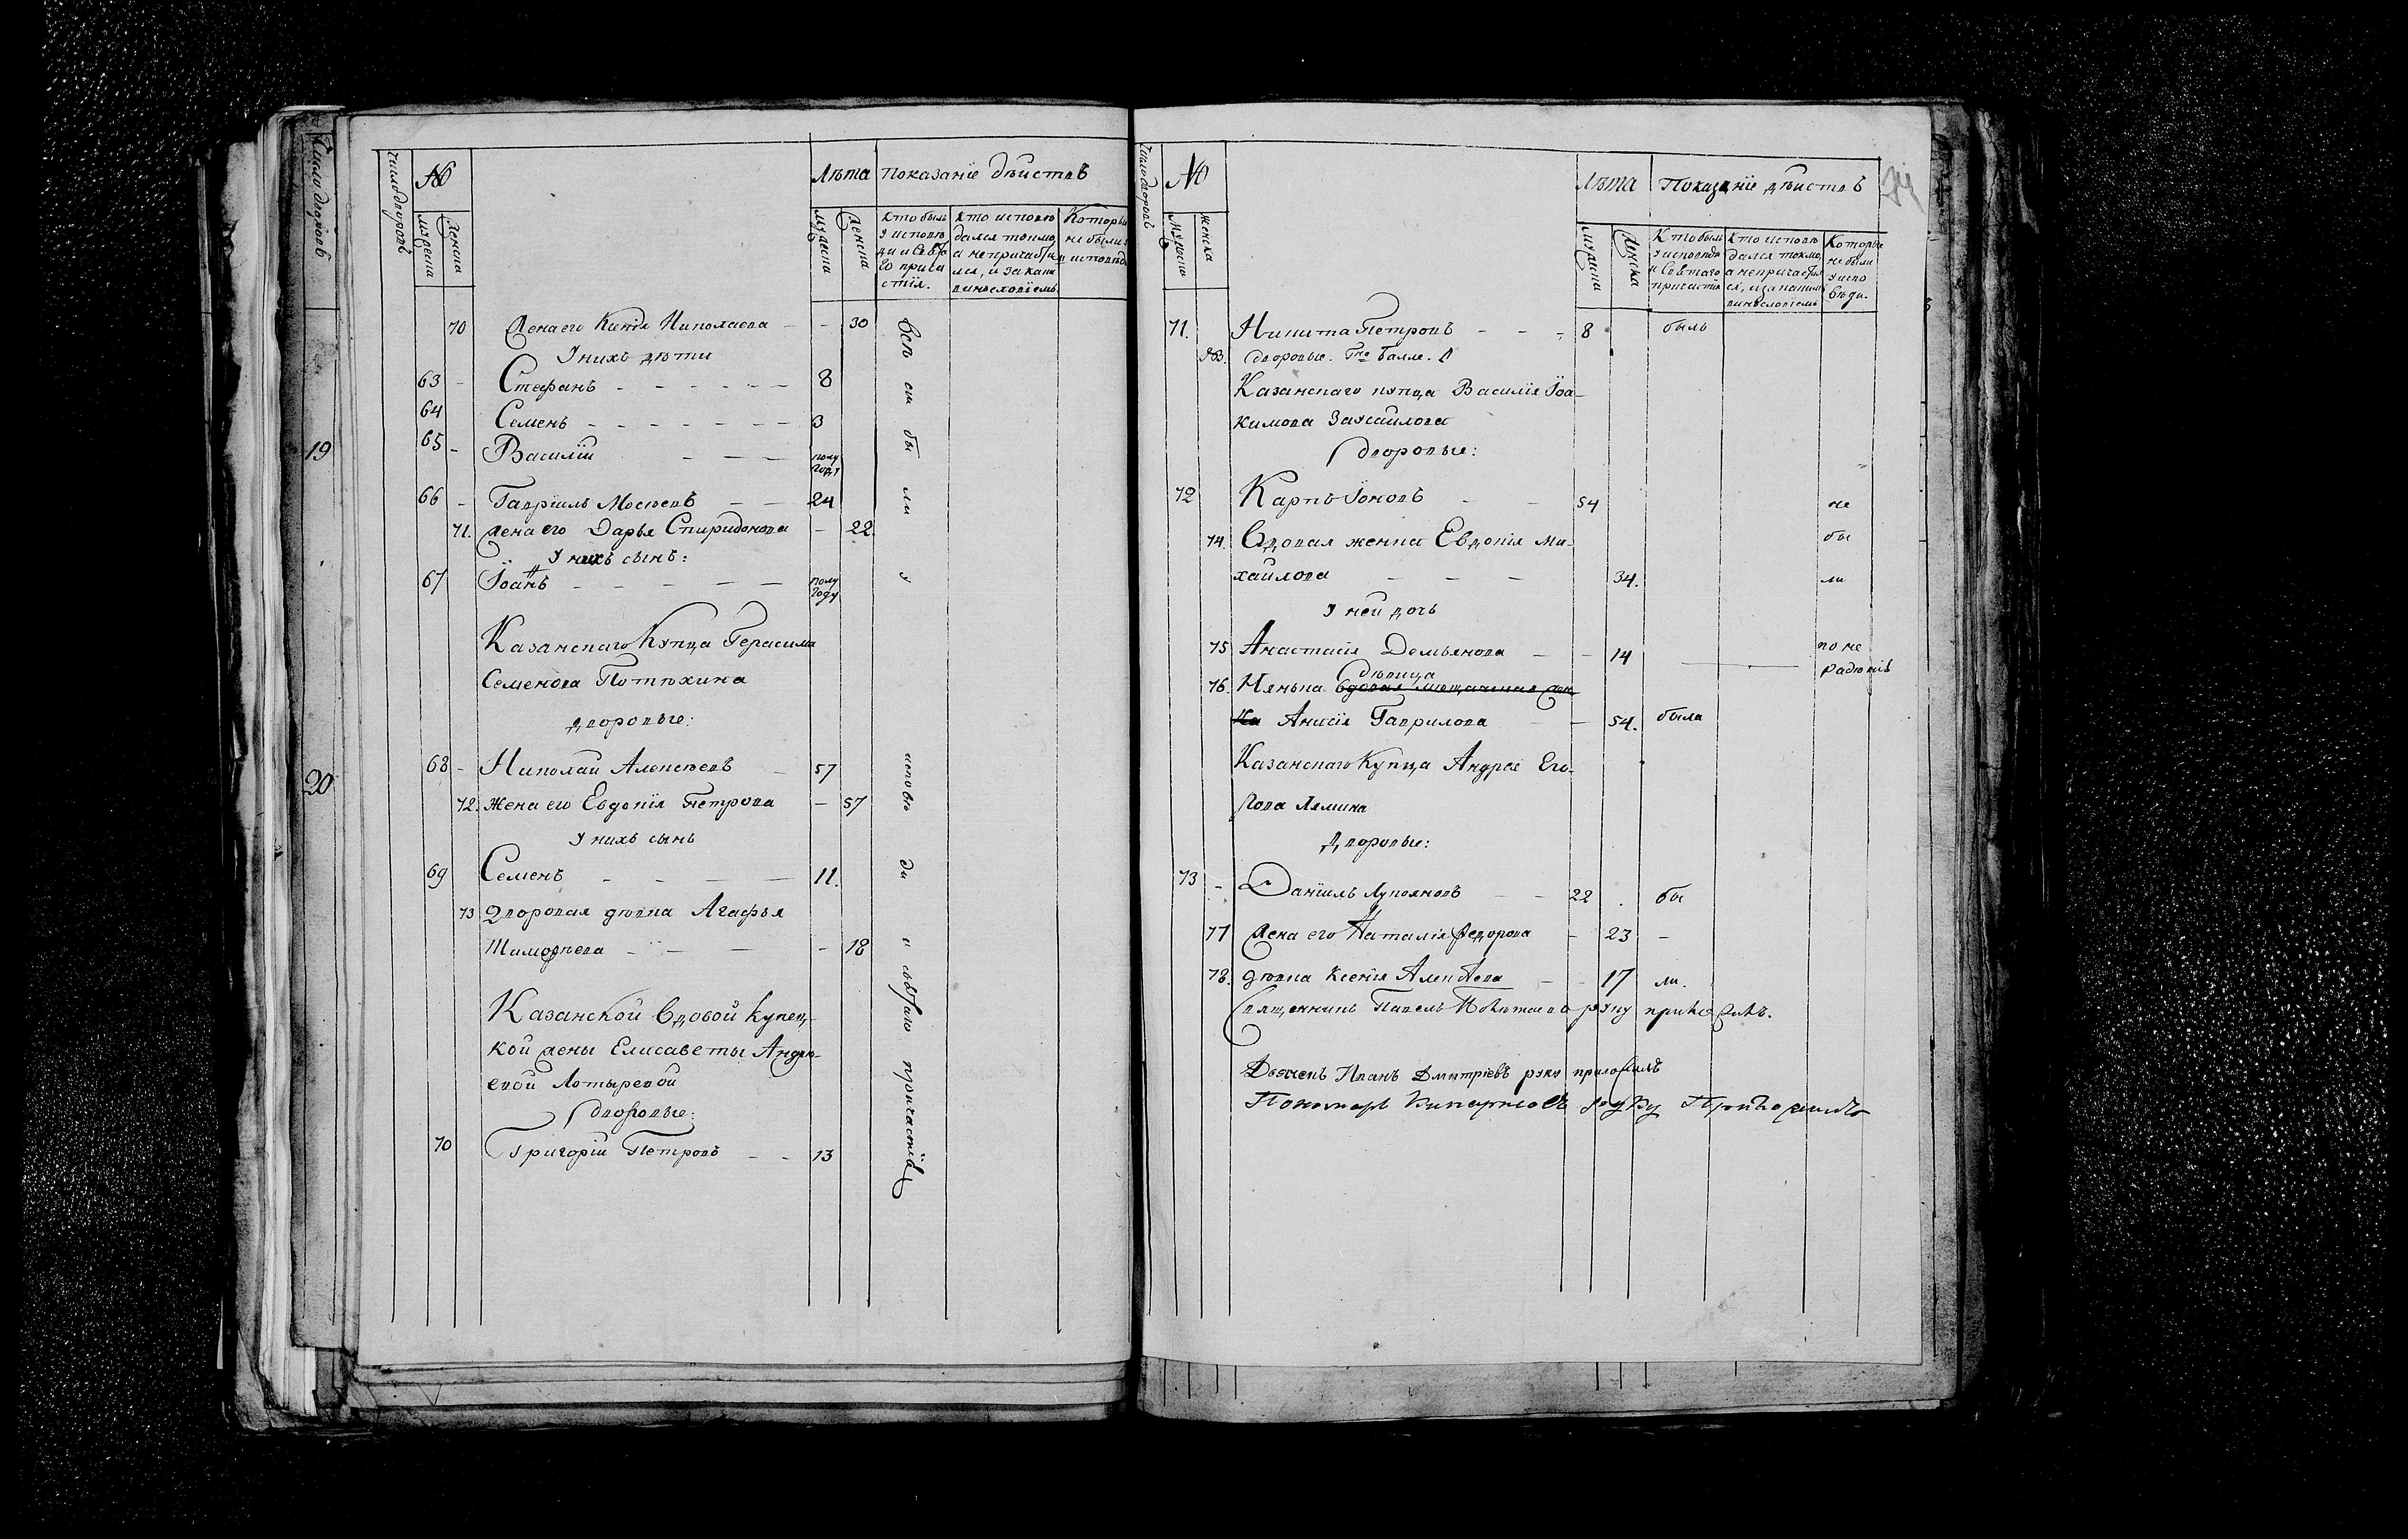 Число дворовъ
19
20
Число дворовъ
№
Лѣта Показанїе дѣиствъ
мужеска
женска
мужеска
женска
Кто былъ
у исповѣ
ди и свѧта
го прича
стїѧ.
Кто исповѣ
дался токмо
а непричасти
лся, и за каки
винословїемъ
Которые
не были
у исповѣди
70 Жена его Ксенїя Николаева - - 30
У нихъ дѣти
63 - Стефанъ - - - - - - 8
64 Семенъ - - - - - - - 3
65 - Василїи - - - полу
года
66 - Гаврїилъ Моѵсеевъ - - 24
71. Жена его Дарья Спиридонова - 22.
У нихъ сынъ:
67 Їоаннъ - - - - - полу
году
Казанскаго Купца Герасима
Семенова Потѣхина
дворовые:
68 - Николаи Алексѣевъ - 57
72. жена его Евдокїя Петрова - 57
У нихъ сынъ
69 Семенъ - - - - 11.
73 Дворовая дѣвка Агафья
Тимофѣева - - - - 18
Казанской вдовой купец-
кой жены Елисаветы Андрѣ-
евой Лотыревой
дворовые:
70 Григорїи Петровъ - - 13
всѣ
они
бы
ли
у
исповѣ
ди
и свѧтаго причастїѧ
Число дворовъ
№
Лѣта Показанїе дѣиствъ
мужеска
женска
мужеска
женска
Кто былъ
у исповѣди
и Свѧтаго
причастїѧ
Кто исповѣ
дался токмо,
а непричастил
сѧ, и за какимъ
винословїемъ
Которые
не были
у испо
вѣди.
71. Никита Петровъ - - - 8 былъ
Казанскаго купца Василїя Їоа-
кимова Заусаилова
дворовые:
72 Карпъ Їоновъ - - 54 не
74. Вдовая женка Евдокїя Ми- бы
хаилова - - - 34. ли
У ней дочь
75 Анастасїя Демьянова - - 14 по не
радѣнїю
дѣвица
76. Нянька вдовая мещанская жен
ка Анисїя Гаврилова - - 54. была
Казанскаго Купца Андрея Его-
рова Лямина
Дворовые:
73 - Данїилъ Лукояновъ - - 22 бы
77 Жена его Наталїя Федорова - 23 -
78. дѣвка Ксенїя Алексѣева - - 17 ли.
Священникъ Павелъ руку приложилъ.
Дьяченъ Иванъ Дмитрїевъ руку приложилъ
Пономарь Кипарисовъ руку Приложилъ